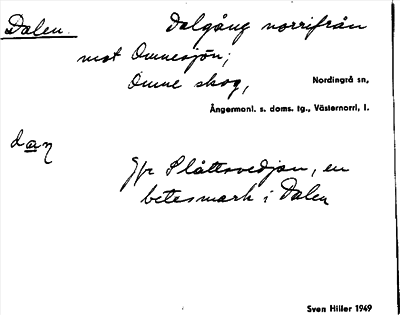 Dalen. Dalgång norrifrån
mot Omnesjön;
Omne skog, Nordingrå sn,
Ångermanl. s. doms. tg., Västernorrl. l.
dan
Jfr Slåttsvedjan, en
betesmark i Dalen
Sven Hiller 1949